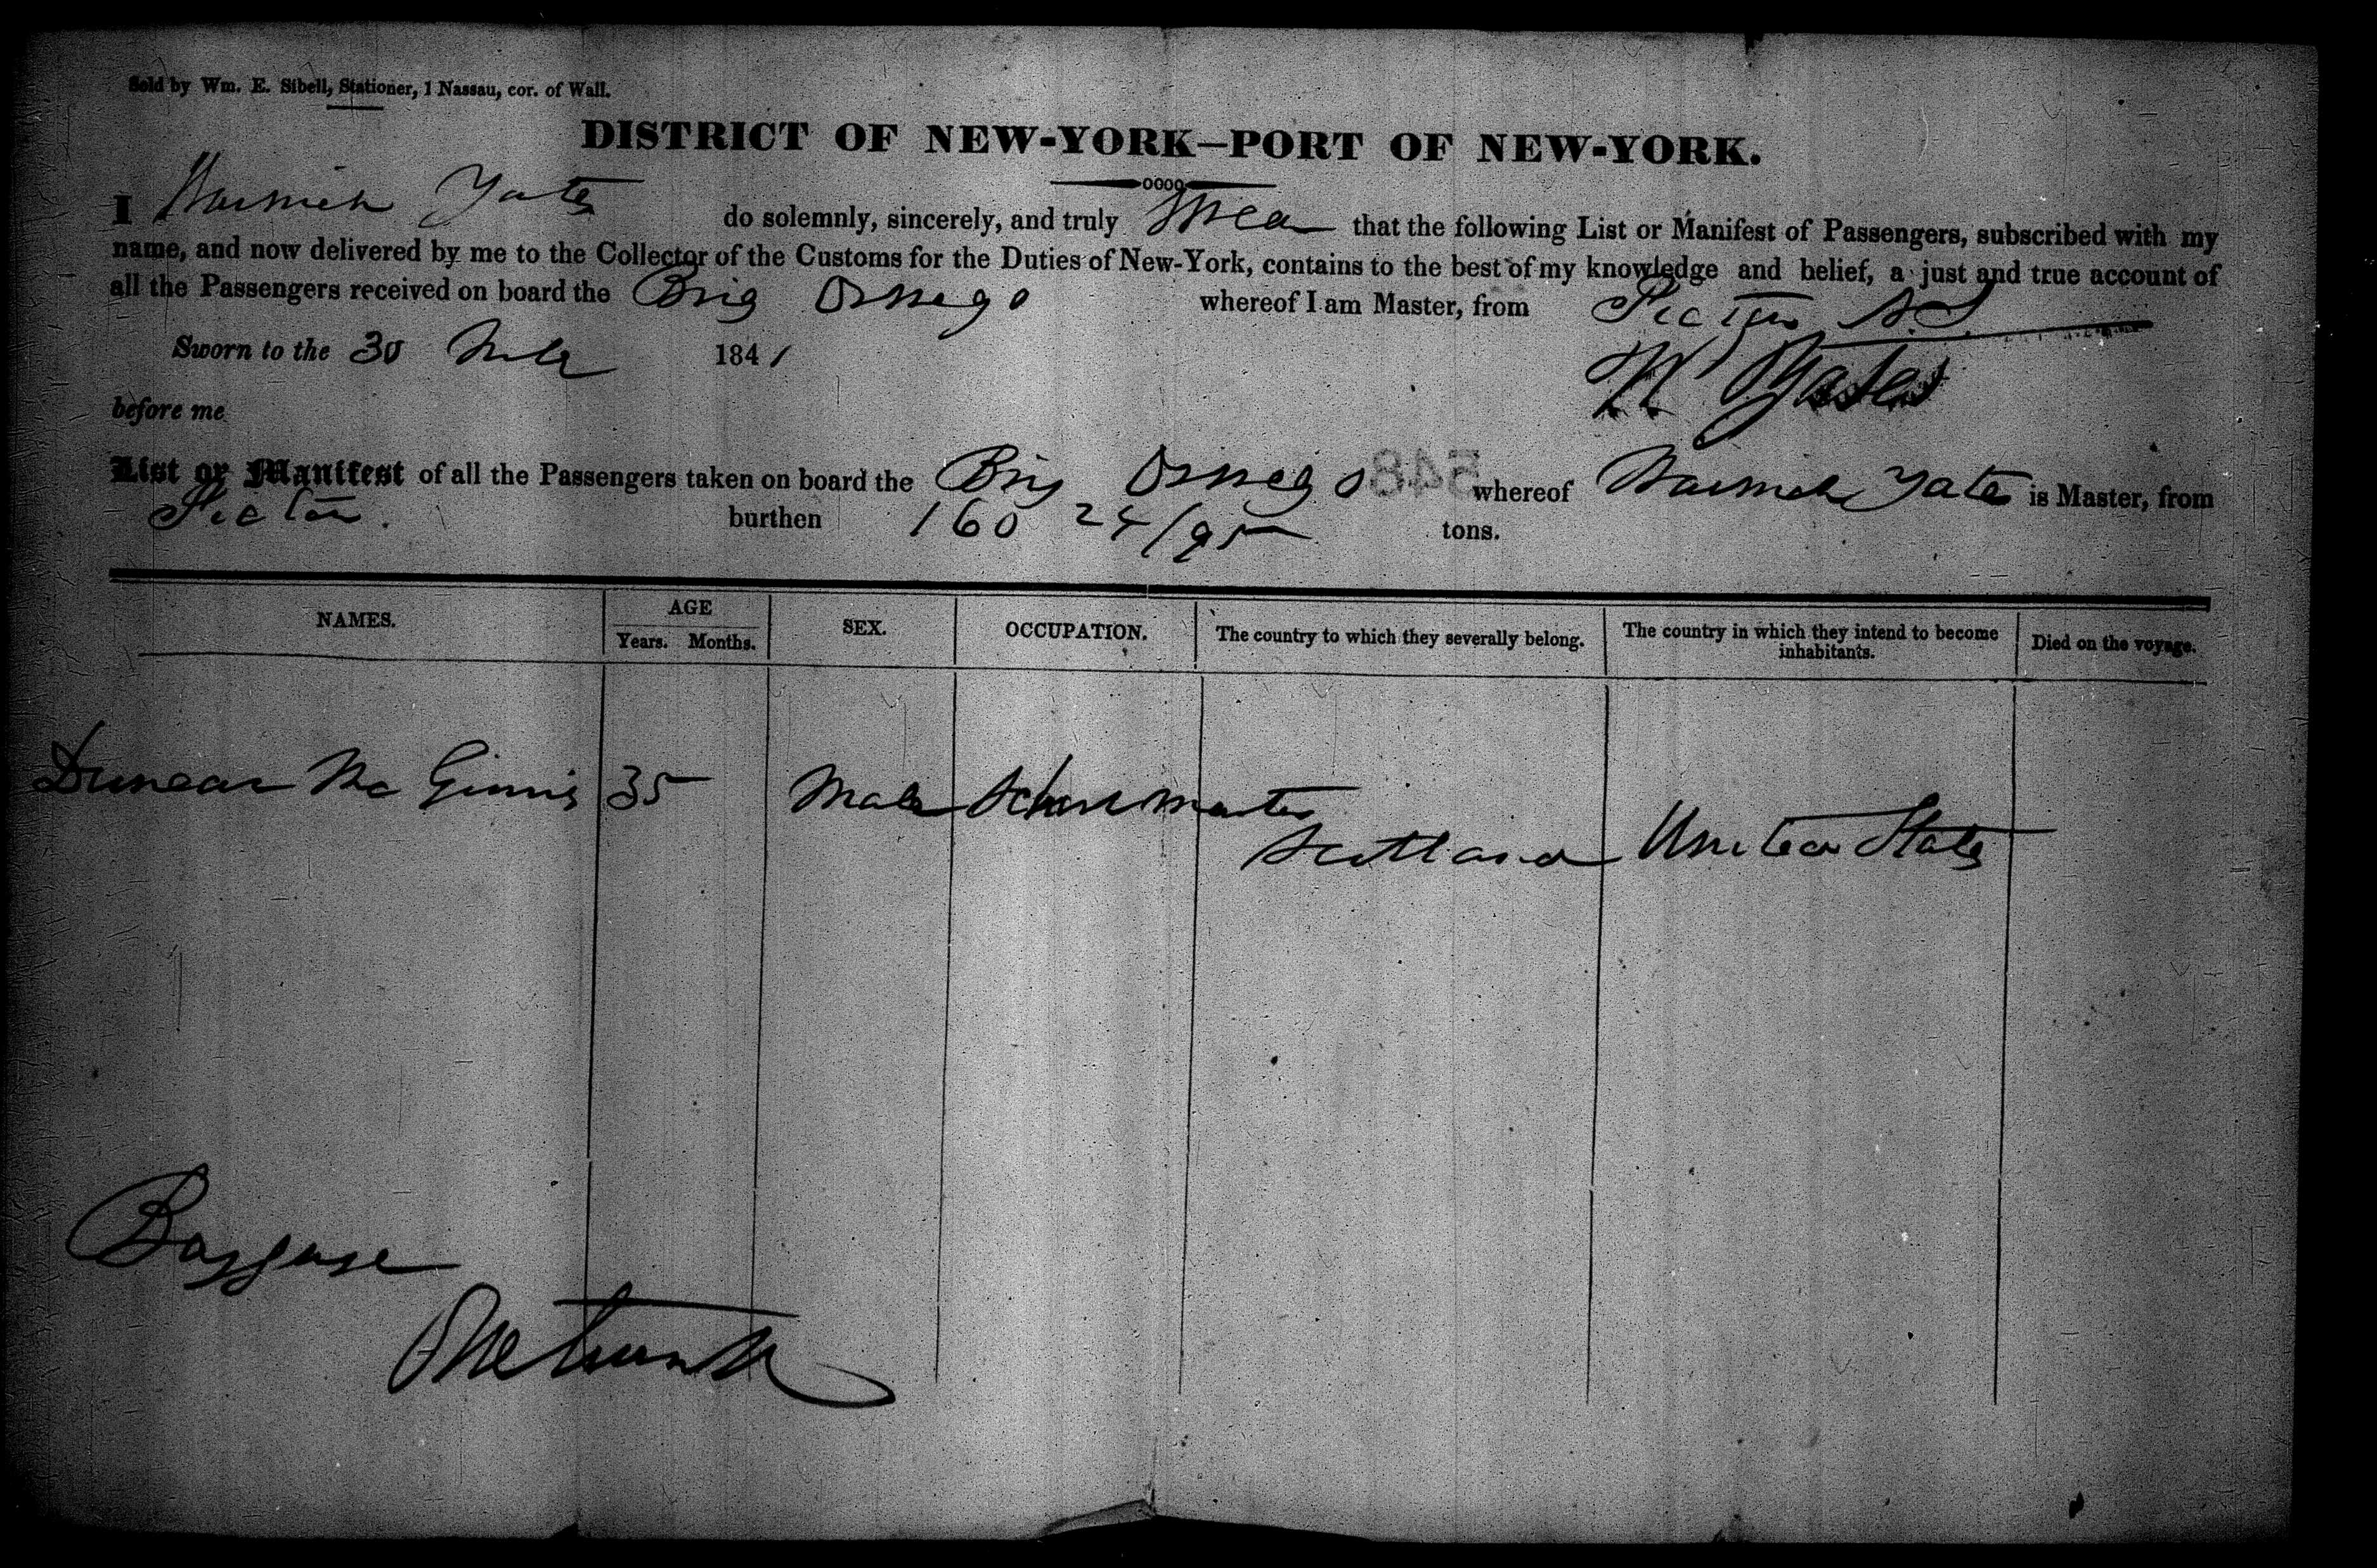 Sold by Wm. E. Sibell, Stationer, 1 Nassau, cor. of Wall.
DISTRICT OF NEW-YORK—PORT OF NEW-YORK.
I Warwick Yates do solemnly, sincerely, and truly Swear that the following List or Manifest of Passengers, subscribed with my
name, and now delivered by me to the Collector of the Customs for the Duties of New-York, contains to the best of my knowledge and belief, a just and true account of
all the Passengers received on board the Brig Oswego whereof I am Master, from Pictou N.S.
Sworn to the 30 1841
W Yates
before me
List or Manifest of all the Passengers taken on board the Brig Oswego 548 whereof Warwick Yates is Master, from
Pictou. burthen 160 24/95 tons.
NAMES. AGE SEX. OCCUPATION. The country to which they severally belong. The country in which they intend to become inhabitants. Died on the voyage.
Years. Months.
Duncan Mc Ginnis 35 Male School master Scotland United States
Baggage
One trunk